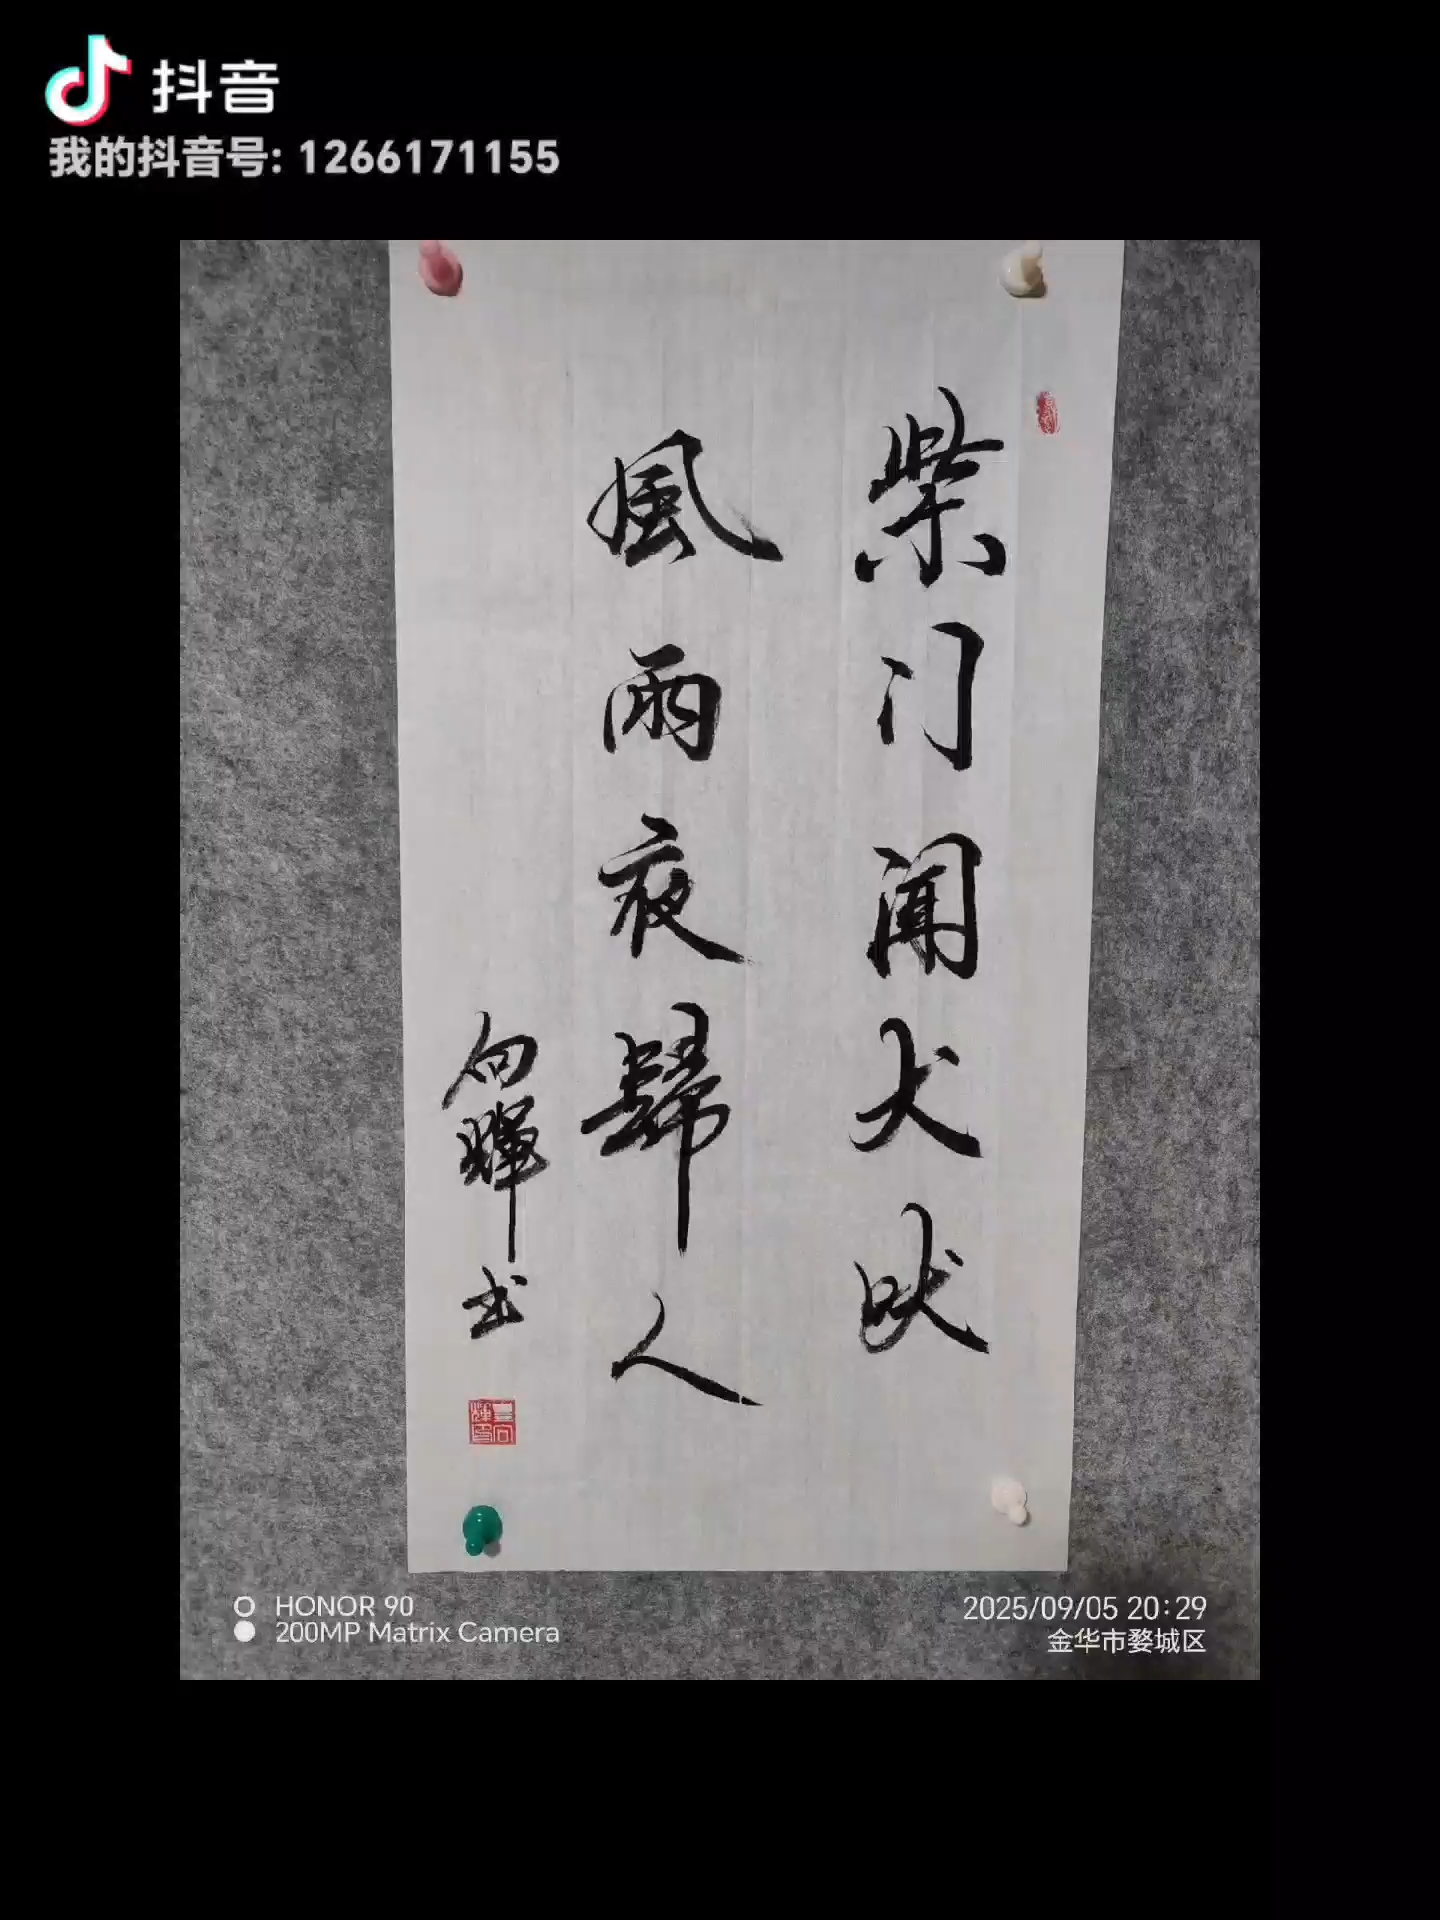 抖音
我的抖音号: 1266171155
柴门闻犬吠
風雨夜歸人
向輝书
HONOR 90
200MP Matrix Camera
2025/09/05 20:29
金华市婺城区